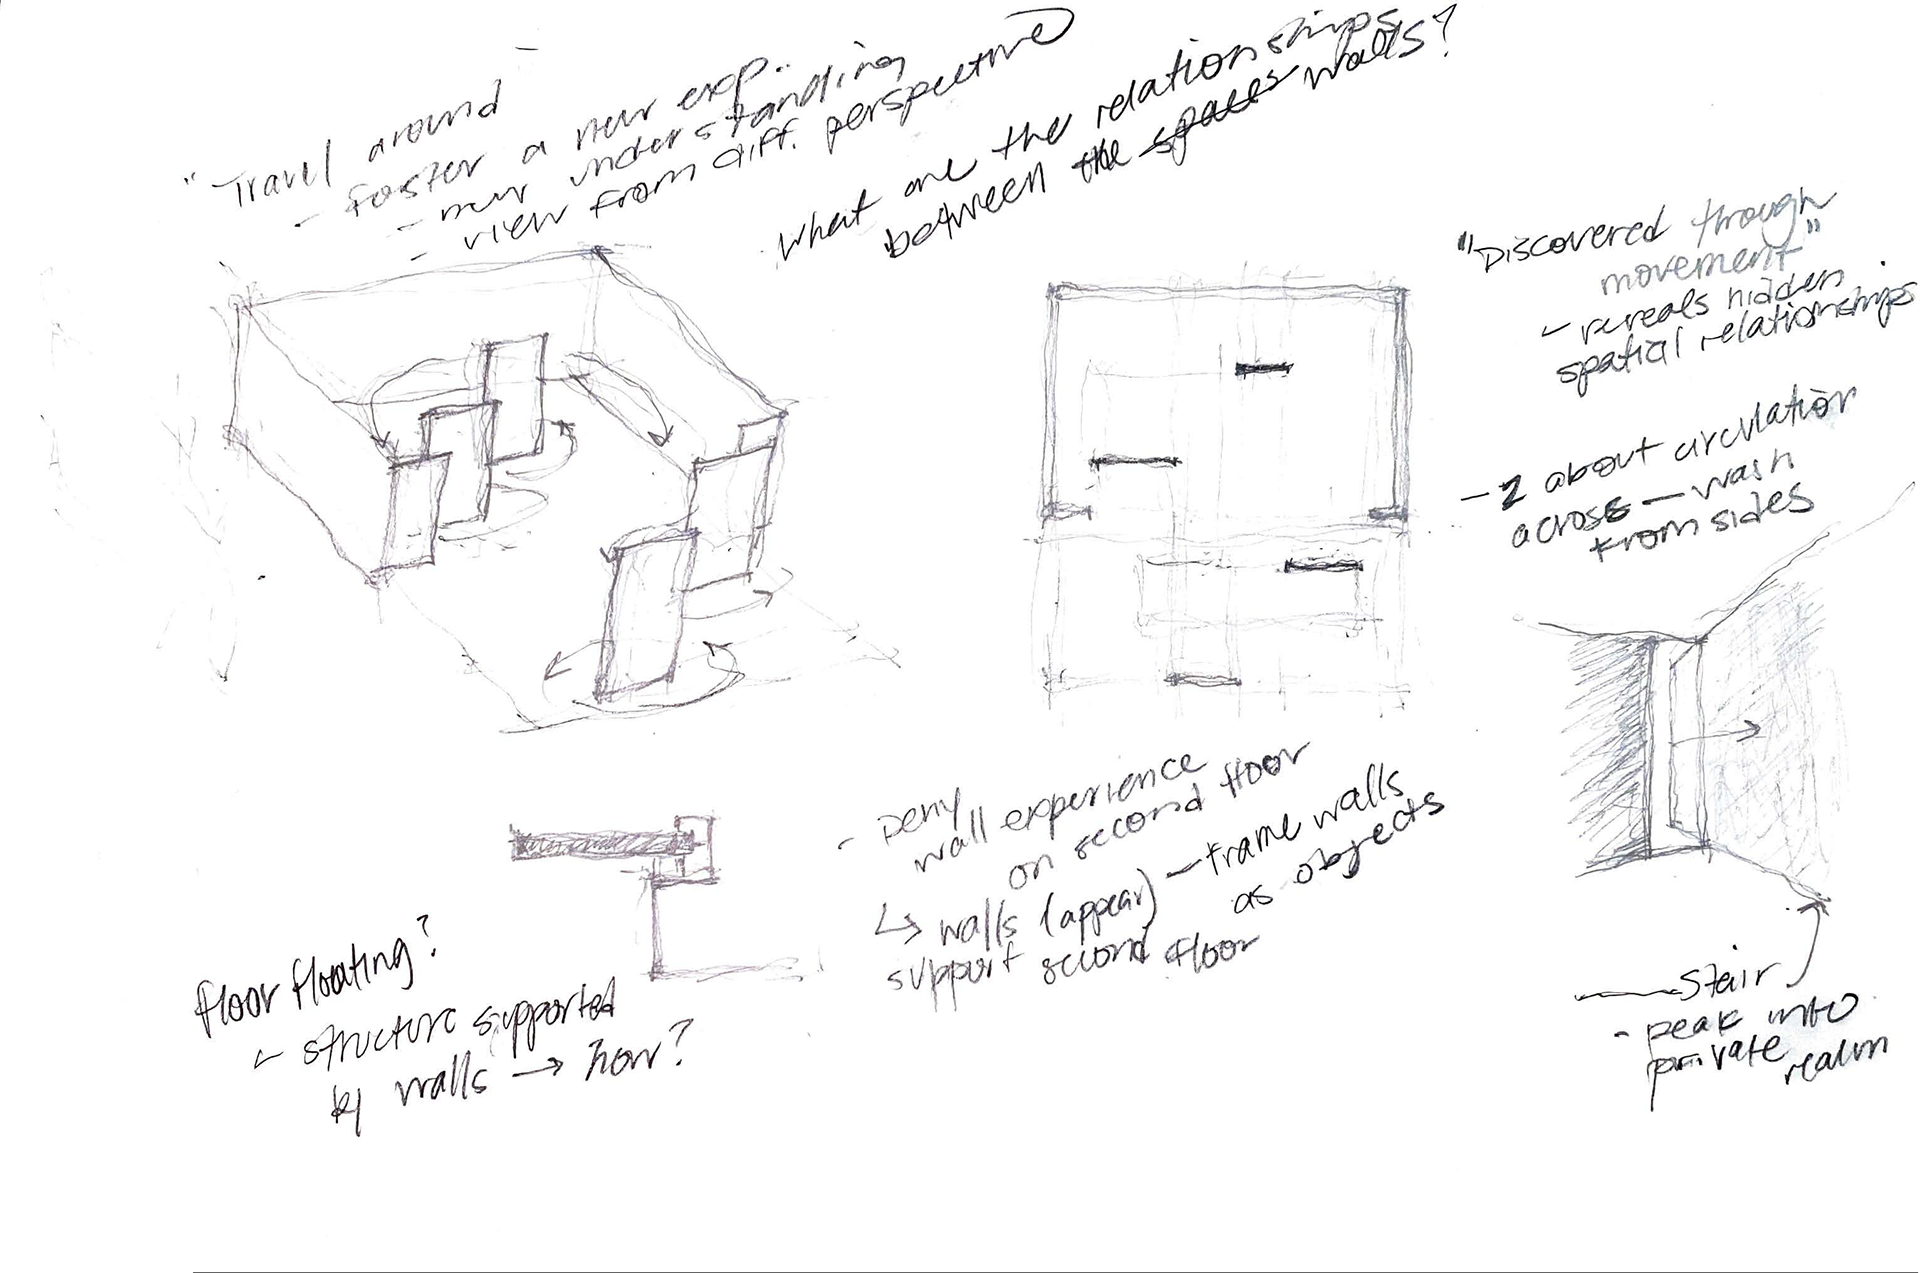 "Travel around
- foster a new exp.
- new understanding
- view from diff. perspective
What are the relationships
between the spaces walls?
"Discovered through
movement"
- reveals hidden
spatial relationships
- 2 about circulation
across - wash
from sides
- Deny
wall experience
on second floor
↳ walls (appear) - frame walls
as objects
support second floor
floor floating?
- structure supported
by walls → how?
stair
- peak into
private realm